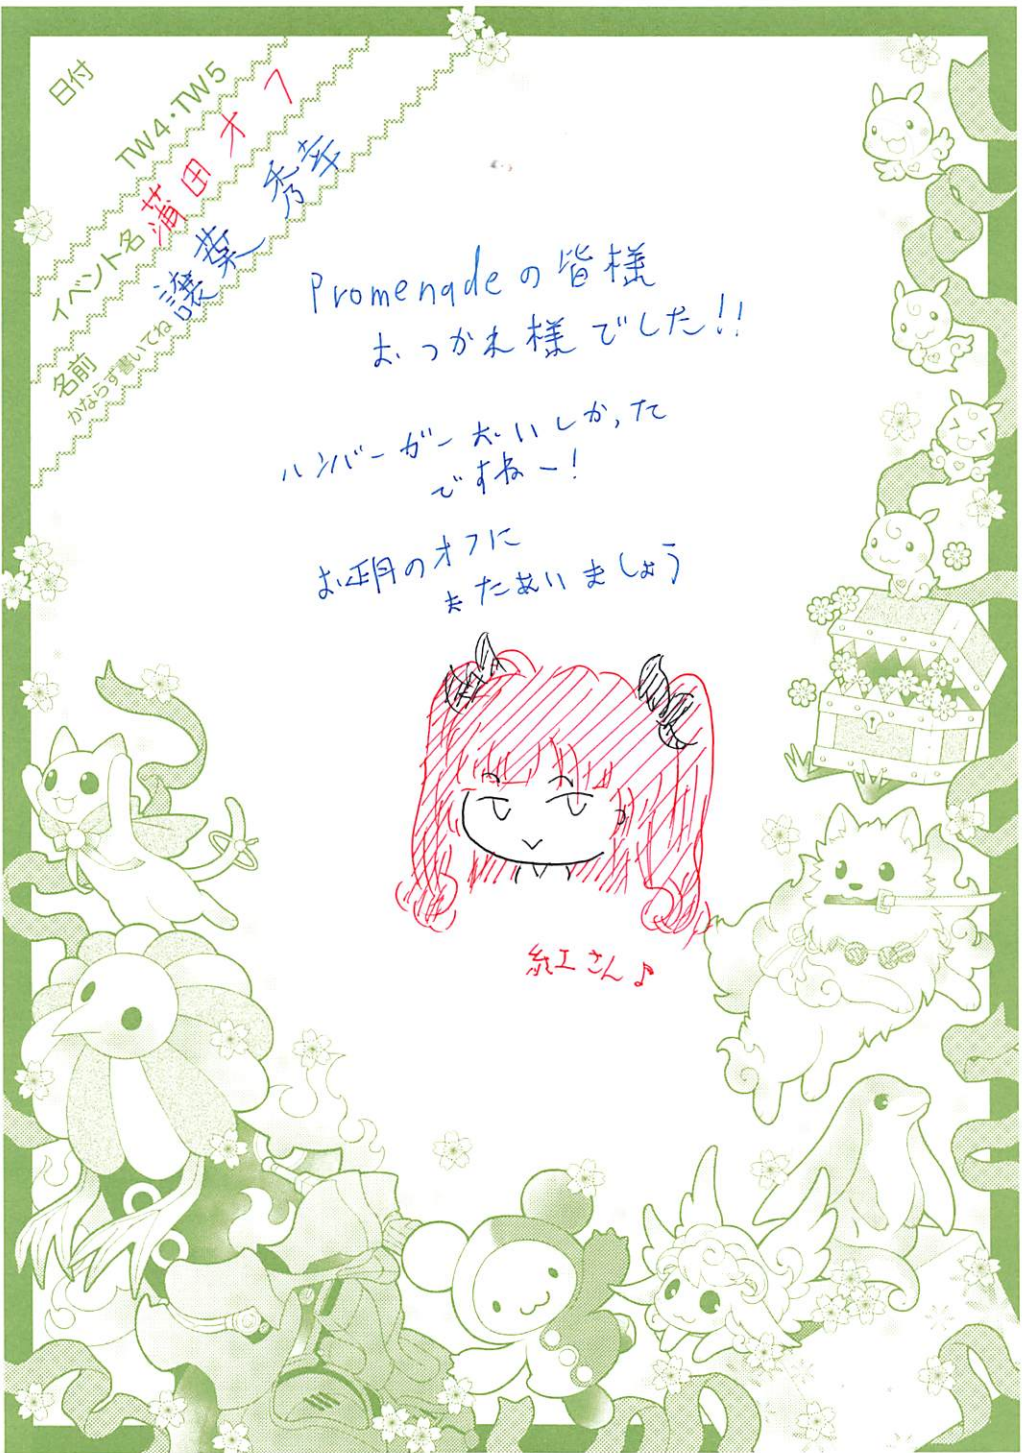 日付
TW4・TW5
イベント名 蒲田オフ
名前 譲葉 秀幸
かならず書いてね
Promenadeの皆様
おつかれ様でした!!
ハンバーガーおいしかった
ですねー!
お正月のオフに
またあいましょう
紅さん♪